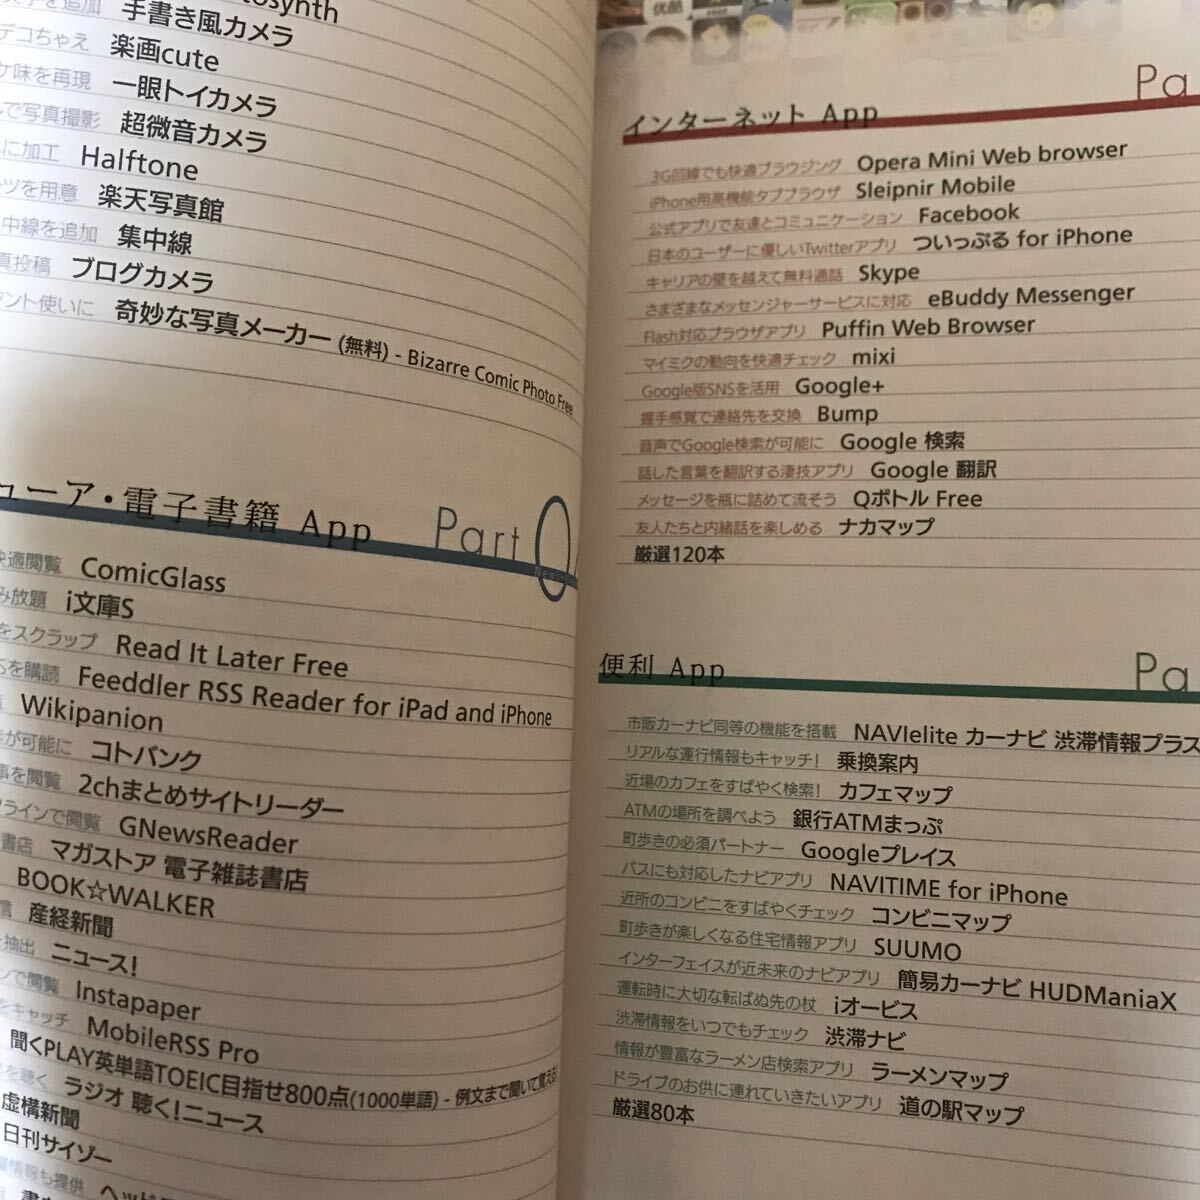 手書き風カメラ
デコちゃえ 楽画cute
味を再現 一眼トイカメラ
で写真撮影 超微音カメラ
に加工 Halftone
ーツを用意 楽天写真館
中線を追加 集中線
真投稿 ブログカメラ
タント使いに 奇妙な写真メーカー (無料) - Bizarre Comic Photo Free
ューア・電子書籍 App Part 0
快適閲覧 ComicGlass
み放題 i文庫S
をスクラップ Read It Later Free
Sを購読 Feeddler RSS Reader for iPad and iPhone
Wikipanion
が可能に コトバンク
事を閲覧 2chまとめサイトリーダー
ラインで閲覧 GNewsReader
書店 マガストア 電子雑誌書店
BOOK☆WALKER
信 産経新聞
抽出 ニュース!
ンで閲覧 Instapaper
をキャッチ MobileRSS Pro
聞くPLAY英単語TOEIC目指せ800点(1000単語) - 例文まで聞いて覚える!
を聴く ラジオ 聴く!ニュース
虚構新聞
日刊サイゾー
情報も提供 ヘッド
インターネット App Pa
3G回線でも快適ブラウジング Opera Mini Web browser
iPhone用高機能タブブラウザ Sleipnir Mobile
公式アプリで友達とコミュニケーション Facebook
日本のユーザーに優しいTwitterアプリ ついっぷる for iPhone
キャリアの壁を越えて無料通話 Skype
さまざまなメッセンジャーサービスに対応 eBuddy Messenger
Flash対応ブラウザアプリ Puffin Web Browser
マイミクの動向を快適チェック mixi
Google版SNSを活用 Google+
握手感覚で連絡先を交換 Bump
音声でGoogle検索が可能に Google 検索
話した言葉を翻訳する凄技アプリ Google 翻訳
メッセージを瓶に詰めて流そう Qボトル Free
友人たちと内緒話を楽しめる ナカマップ
厳選120本
便利 App Pa
市販カーナビ同等の機能を搭載 NAVIelite カーナビ 渋滞情報プラス
リアルな運行情報もキャッチ! 乗換案内
近場のカフェをすばやく検索! カフェマップ
ATMの場所を調べよう 銀行ATMまっぷ
町歩きの必須パートナー Googleプレイス
バスにも対応したナビアプリ NAVITIME for iPhone
近所のコンビニをすばやくチェック コンビニマップ
町歩きが楽しくなる住宅情報アプリ SUUMO
インターフェイスが近未来のナビアプリ 簡易カーナビ HUDManiaX
運転時に大切な転ばぬ先の杖 iオービス
渋滞情報をいつでもチェック 渋滞ナビ
情報が豊富なラーメン店検索アプリ ラーメンマップ
ドライブのお供に連れていきたいアプリ 道の駅マップ
厳選80本